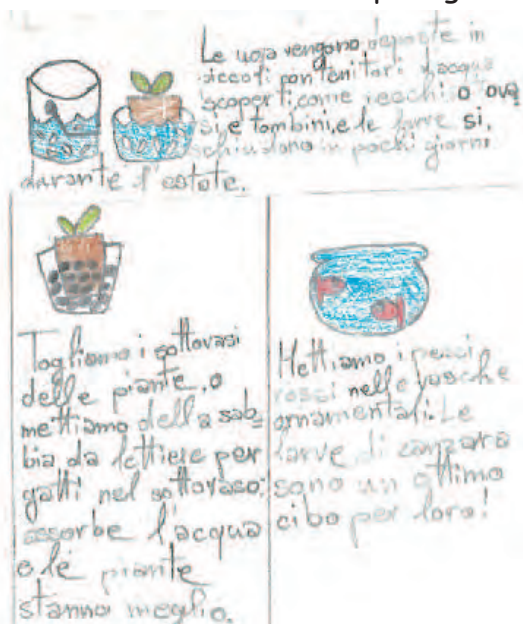 Le uova vengono deposte in
piccoli contenitori d'acqua
scoperti, come secchi o ova
si e tombini, e le larve si
schiudono in pochi giorni
durante l'estate.
Togliamo i sottovasi
delle piante, o
mettiamo della sab_
bia da lettiere per
gatti nel sottovaso:
assorbe l'acqua
e le piante
stanno meglio.
Mettiamo i pesci
rossi nelle vasche
ornamentali: Le
larve di zanzara
sono un ottimo
cibo per loro!